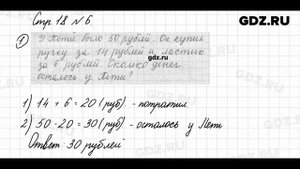 GDZ.RU
Стр. 18 № 6.
1) У Пети было 50 рублей. Он купил
ручку за 14 рублей и ластик
за 6 рублей. Сколько денег
осталось у Пети?
1) 14 + 6 = 20 (руб) - потратил
2) 50 - 20 = 30 (руб) - осталось у Пети
Ответ: 30 рублей